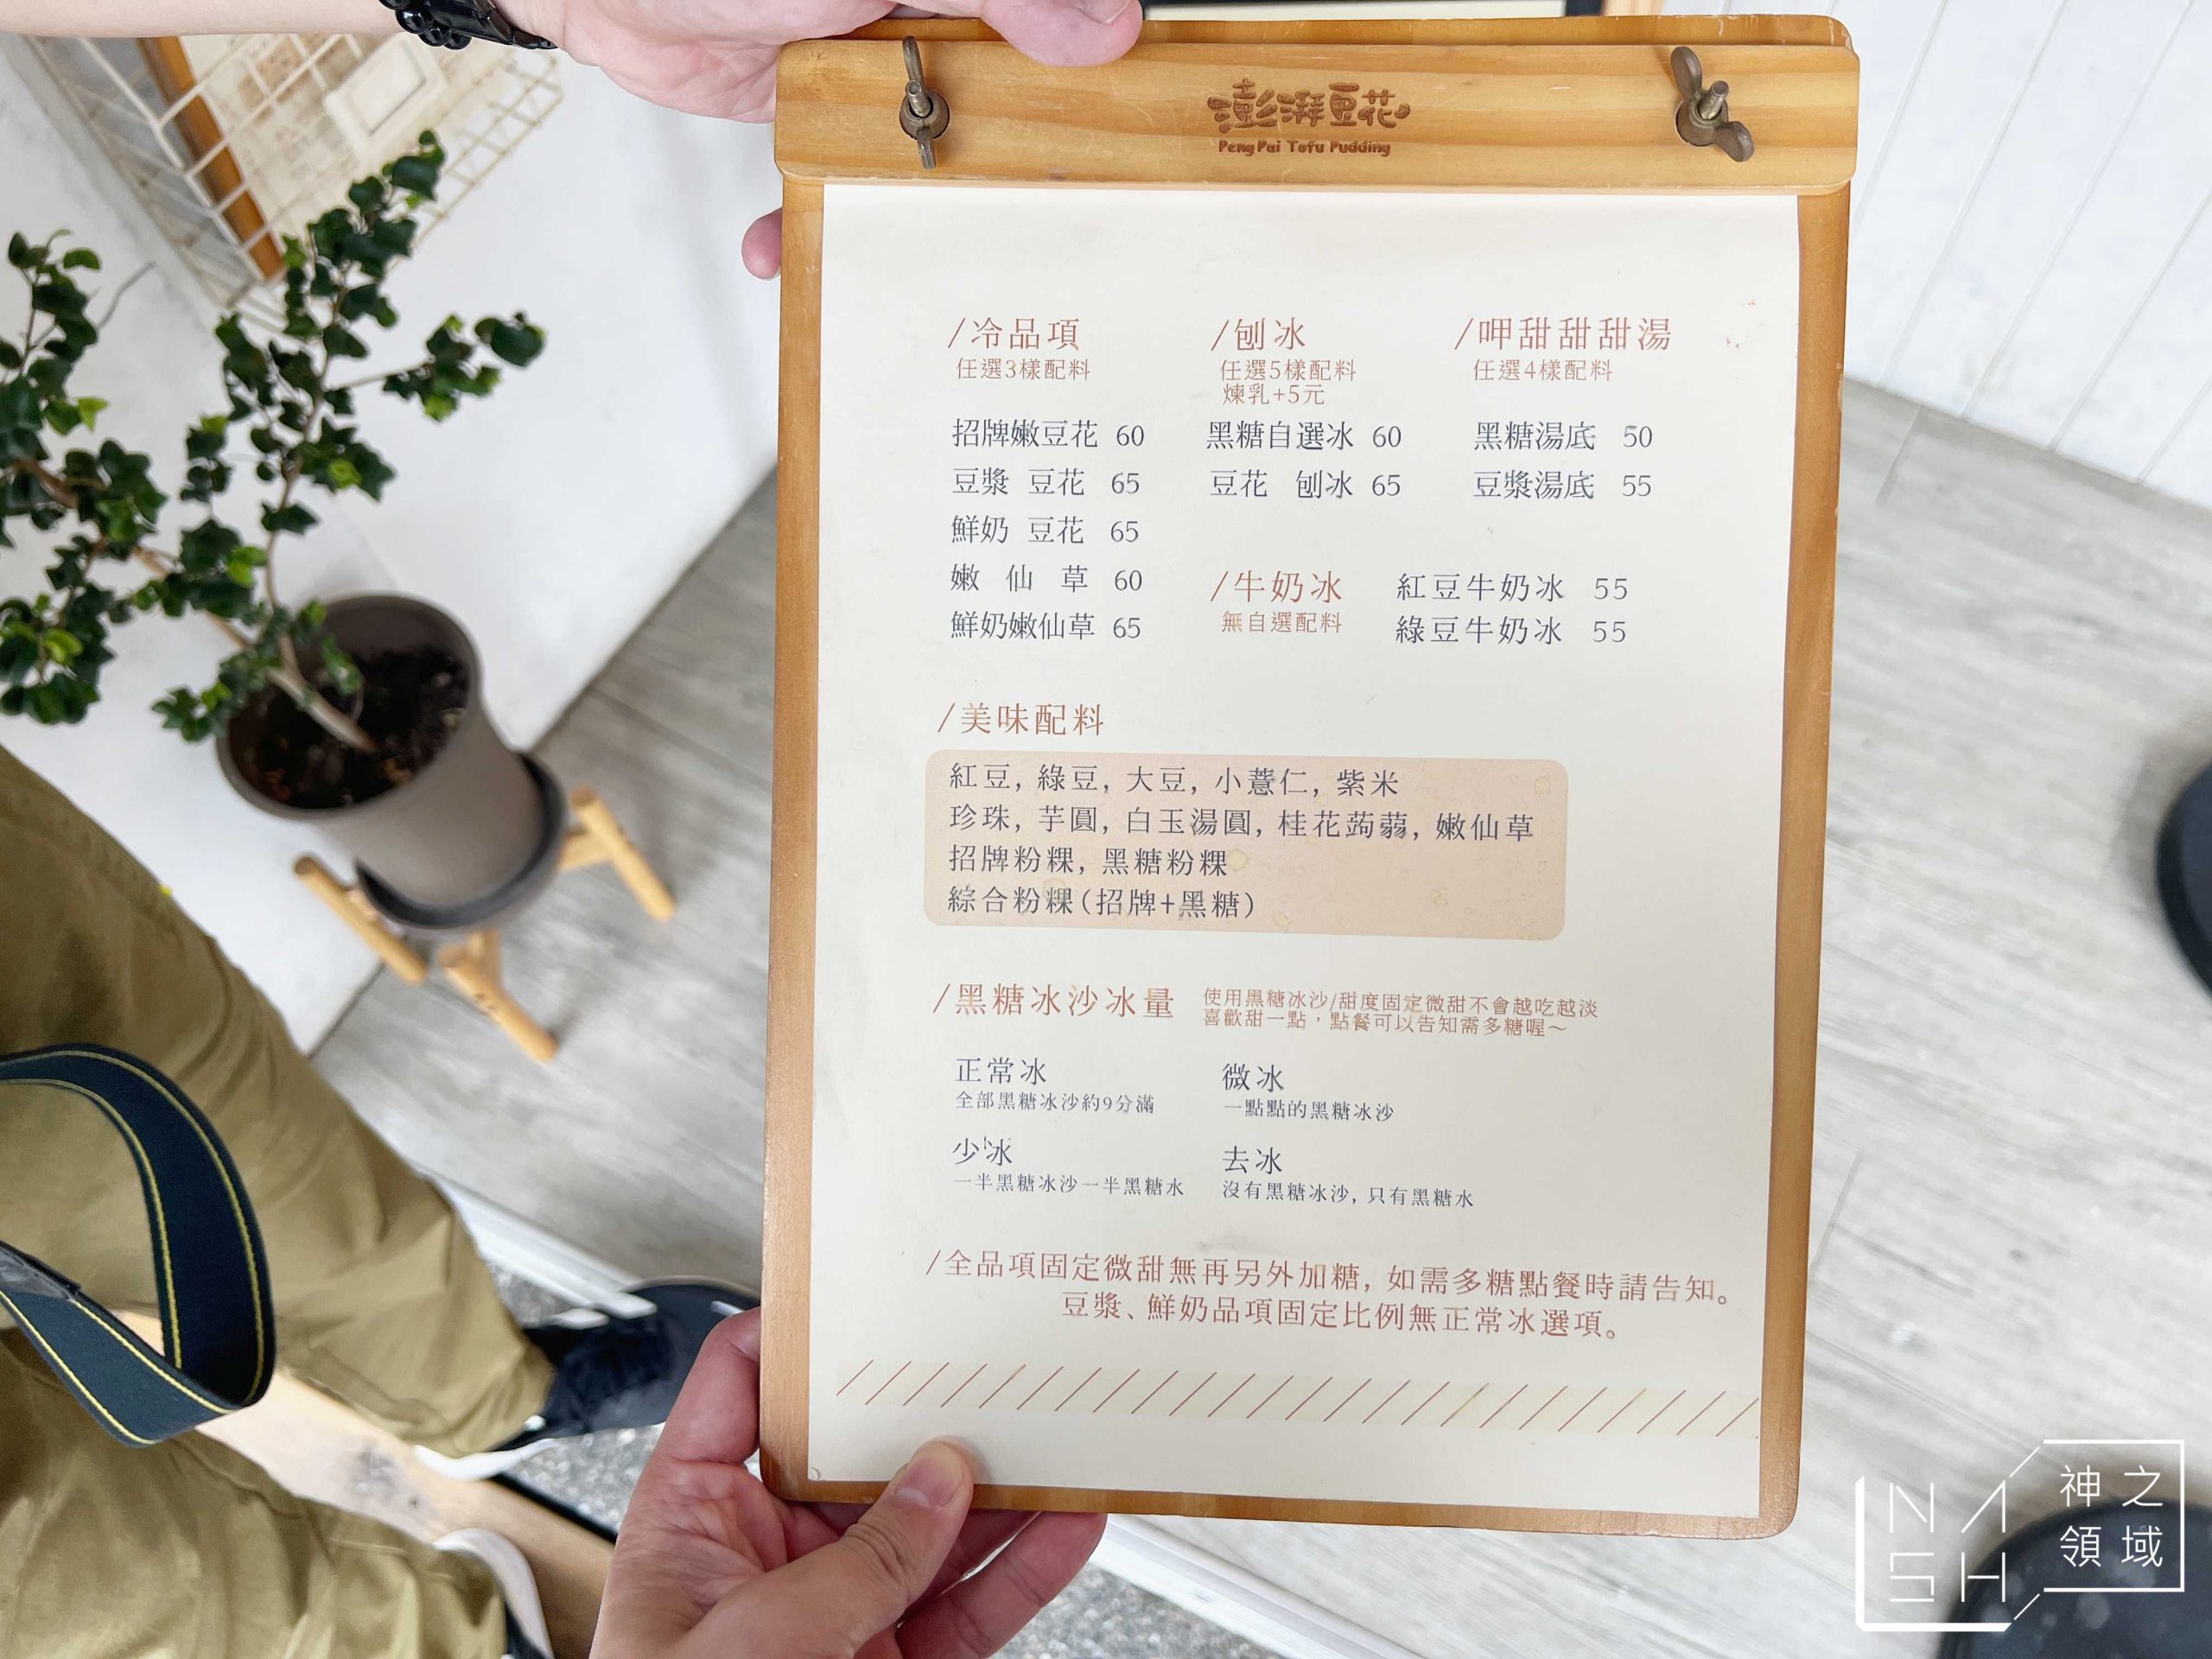 澎湃豆花
Peng Pai Tofu Pudding
/冷品項
任選3樣配料
招牌嫩豆花 60
豆漿 豆花 65
鮮奶 豆花 65
嫩 仙 草 60
鮮奶嫩仙草 65
/刨冰
任選5樣配料
煉乳+5元
黑糖自選冰 60
豆花 刨冰 65
/呷甜甜甜湯
任選4樣配料
黑糖湯底 50
豆漿湯底 55
/牛奶冰
無自選配料
紅豆牛奶冰 55
綠豆牛奶冰 55
/美味配料
紅豆, 綠豆, 大豆, 小薏仁, 紫米
珍珠, 芋圓, 白玉湯圓, 桂花蒟蒻, 嫩仙草
招牌粉粿, 黑糖粉粿
綜合粉粿(招牌+黑糖)
/黑糖冰沙冰量
使用黑糖冰沙/甜度固定微甜不會越吃越淡
喜歡甜一點，點餐可以告知需多糖喔～
正常冰
全部黑糖冰沙約9分滿
微冰
一點點的黑糖冰沙
少冰
一半黑糖冰沙一半黑糖水
去冰
沒有黑糖冰沙, 只有黑糖水
/全品項固定微甜無再另外加糖, 如需多糖點餐時請告知。
豆漿、鮮奶品項固定比例無正常冰選項。
NASH
神之
領域